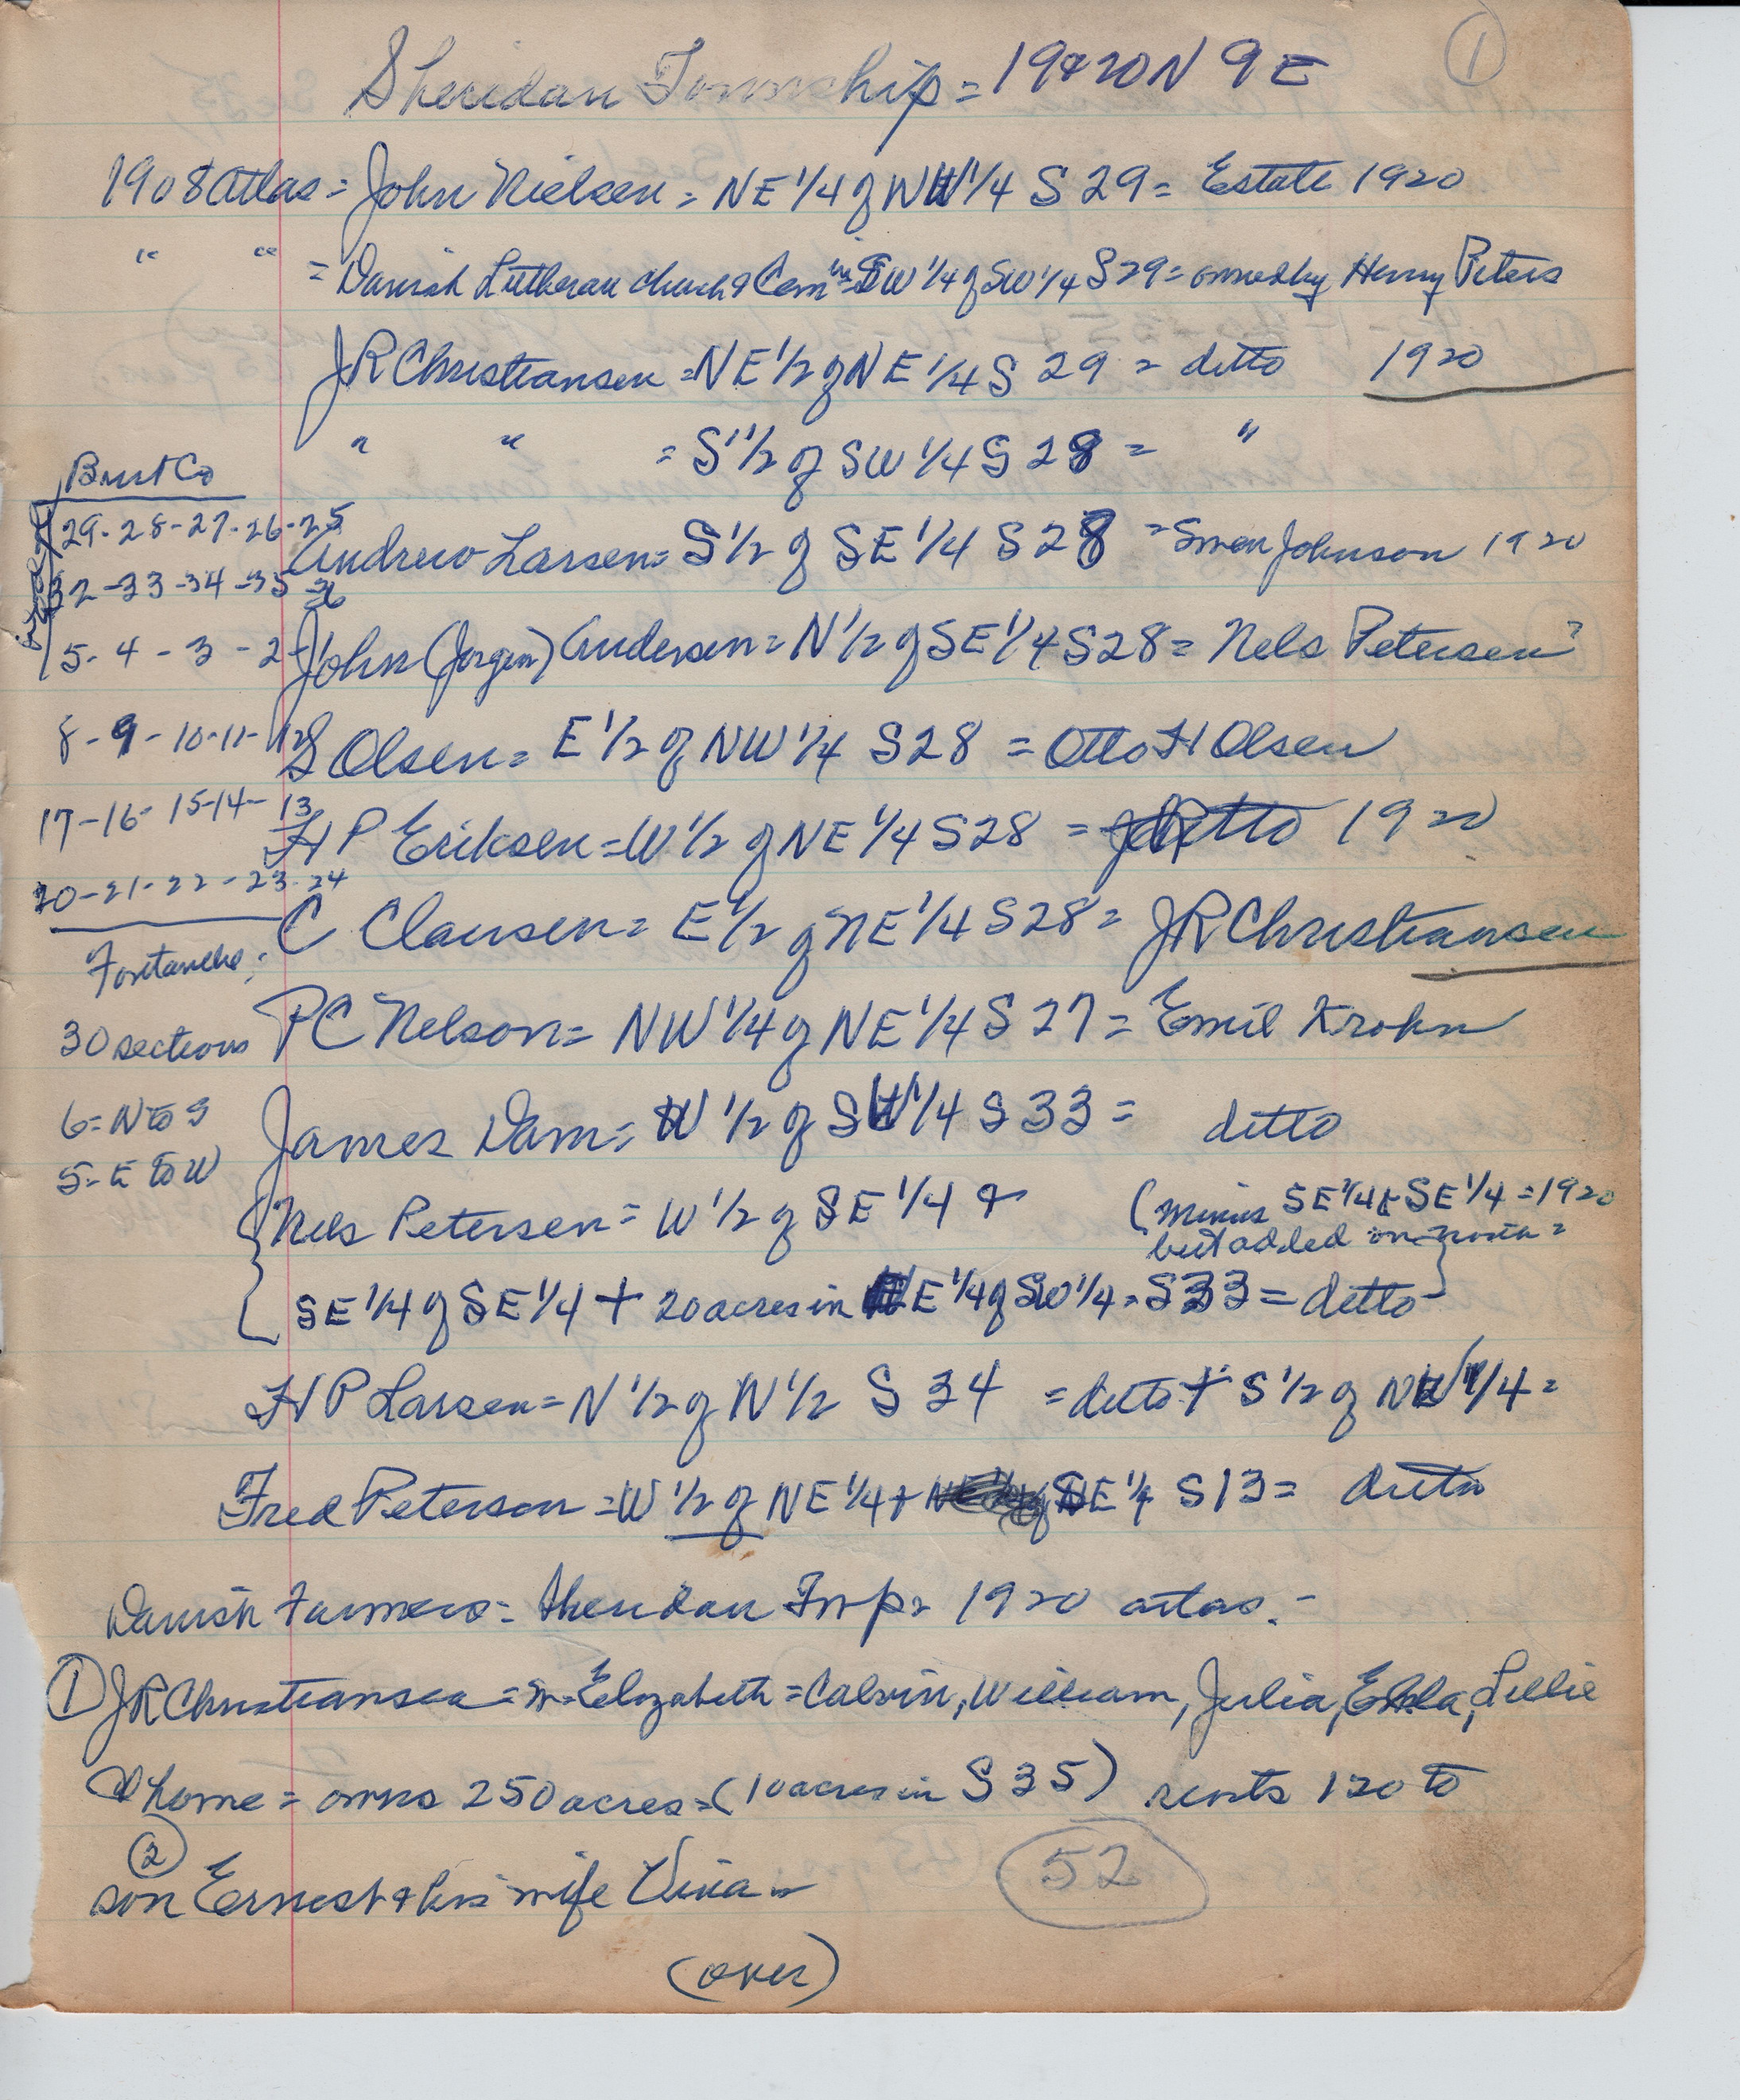 ①
Sheridan Township = 19&20N 9E
1908 Atlas = John Nielsen = NE 1/4 of NW 1/4 S 29 = Estate 1920
" " = Danish Lutheran Church & Cem in SW 1/4 of SW 1/4 S29 = owned by Henry Peters
JR Christiansen = NE 1/2 of NE 1/4 S 29 = ditto 1920
" " = S 1/2 of SW 1/4 S 28 = "
Andrew Larsen = S 1/2 of SE 1/4 S 28 = Swen Johnson 1920
John (Jorgen) Andersen = N 1/2 of SE 1/4 S28 = Nels Petersen?
S Olsen = E 1/2 of NW 1/4 S28 = Otto H Olsen
HP Eriksen = W 1/2 of NE 1/4 S28 = ditto 1920
C Clausen = E 1/2 of NE 1/4 S28 = JR Christiansen
PC Nelson = NW 1/4 of NE 1/4 S 27 = Emil Krohn
James Dam = W 1/2 of SW 1/4 S 33 = ditto
Nels Petersen = W 1/2 of SE 1/4 & (minus SE 1/4 of SE 1/4 = 1920
but added on north =
SE 1/4 of SE 1/4 + 20 acres in NE 1/4 of SW 1/4 = S33 = ditto
HP Larsen = N 1/2 of N 1/2 S 34 = ditto + S 1/2 of NW 1/4 =
Fred Peterson = W 1/2 of NE 1/4 + NE 1/4 S13 = ditto
Burt Co
29-28-27-26-25
32-33-34-35-36
5-4-3-2-1
8-9-10-11-12
17-16-15-14-13
20-21-22-23-24
Fontanelle;
30 sections
6 = N to S
5 = E to W
Danish Farmers = Sheridan Twp = 1920 atlas. =
① JR Christiansen = m = Elizabeth = Calvin, William, Julia, Lillie
@ home = owns 250 acres = (10 acres in S 35) rents 120 to
②
son Ernest & his wife Vina =
52
(over)